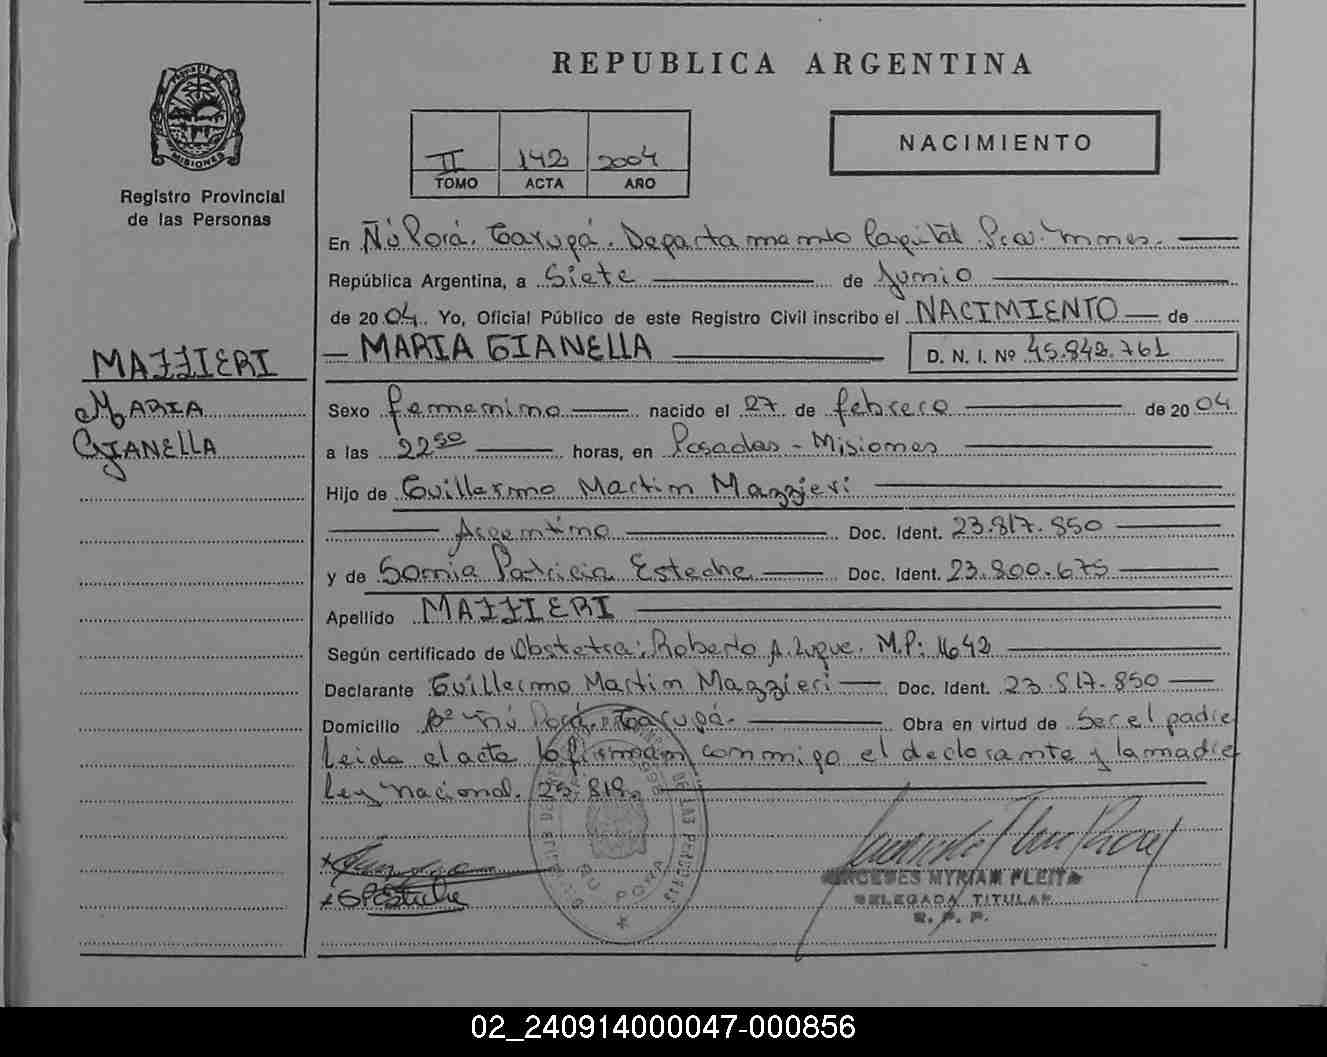 REPUBLICA ARGENTINA
PROVINCIA DE
MISIONES
Registro Provincial
de las Personas
II 142 2004
TOMO ACTA AÑO
NACIMIENTO
En Ñú Porá. Garupá. Departamento Capital Pcia. Mnes.
República Argentina, a Siete de Junio
de 2004. Yo, Oficial Público de este Registro Civil inscribo el NACIMIENTO de
MARIA GIANELLA D. N. I. Nº 45.842.761
MAZZIERI
MARIA
GIANELLA
Sexo femenino nacido el 27 de febrero de 2004
a las 22 50 horas, en Posadas - Misiones
Hijo de Guillermo Martin Mazzieri
Argentino Doc. Ident. 23.817.850
y de Sonia Patricia Esteche Doc. Ident. 23.800.675
Apellido MAZZIERI
Según certificado de Obstetra: Roberto A. Luque. M.P: 1642
Declarante Guillermo Martin Mazzieri Doc. Ident. 23.817.850
Domicilio Bº Ñú Porá. Garupá. Obra en virtud de Ser el padre
Leida el acta la firman conmigo el declarante y la madre
Ley Nacional.
ÑU PORA
MERCEDES MYRIAM FLEITA
DELEGADA TITULAR
R. P. P.
02_240914000047-000856